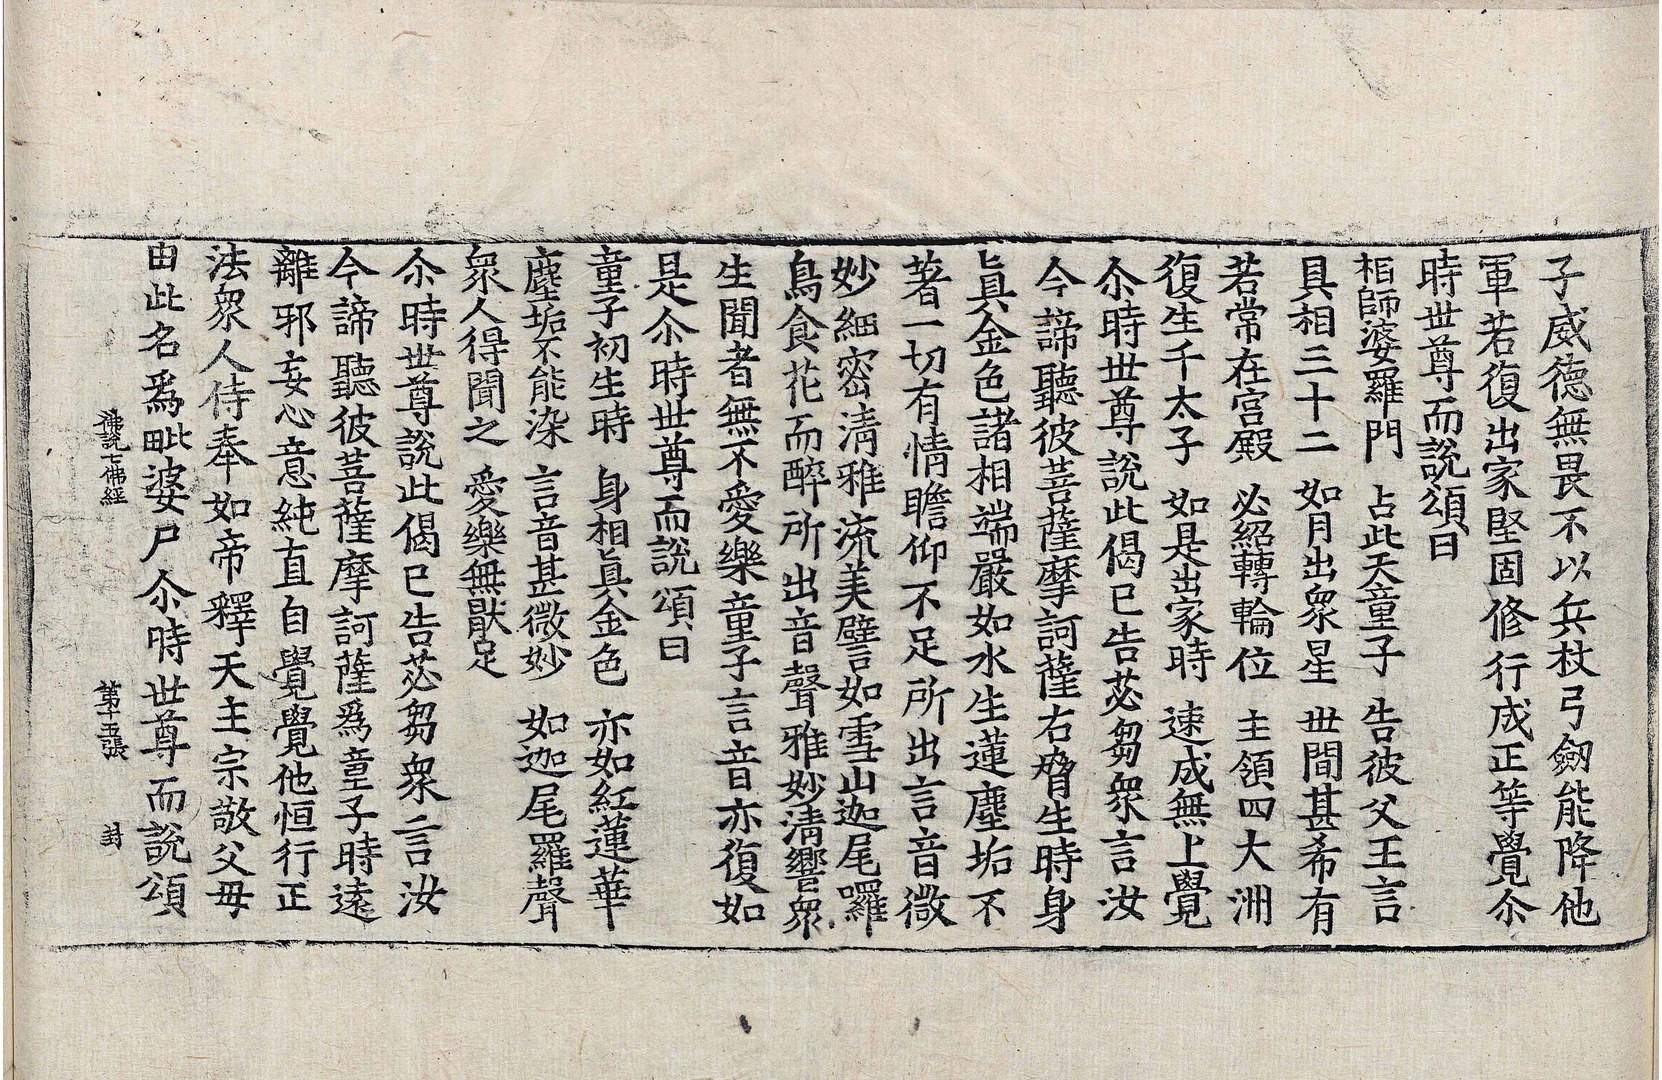 子威德無畏不以兵杖弓劒能降他
軍若復出家堅固修行成正等覺尒
時世尊而說頌曰
相師婆羅門　占此天童子　告彼父王言
具相三十二　如月出衆星　世間甚希有
若常在宫殿　必紹轉輪位　主領四大洲
復生千太子　如是出家時　速成無上覺
尒時世尊說此偈已告苾芻衆言汝
今諦聽彼菩薩摩訶薩右脅生時身
眞金色諸相端嚴如水生蓮塵垢不
著一切有情瞻仰不足所出言音微
妙細密清雅流美譬如雪山迦尾囉
鳥食花而醉所出音聲雅妙清響衆
生聞者無不愛樂童子言音亦復如
是尒時世尊而說頌曰
童子初生時　身相眞金色　亦如紅蓮華
塵垢不能染　言音甚微妙　如迦尾羅聲
衆人得聞之　愛樂無猒足
尒時世尊說此偈已告苾芻衆言汝
今諦聽彼菩薩摩訶薩爲童子時遠
離邪妄心意純直自覺覺他恒行正
法衆人侍奉如帝釋天主宗敬父母
由此名爲毗婆尸尒時世尊而說頌
佛說七佛經　第十五張　封